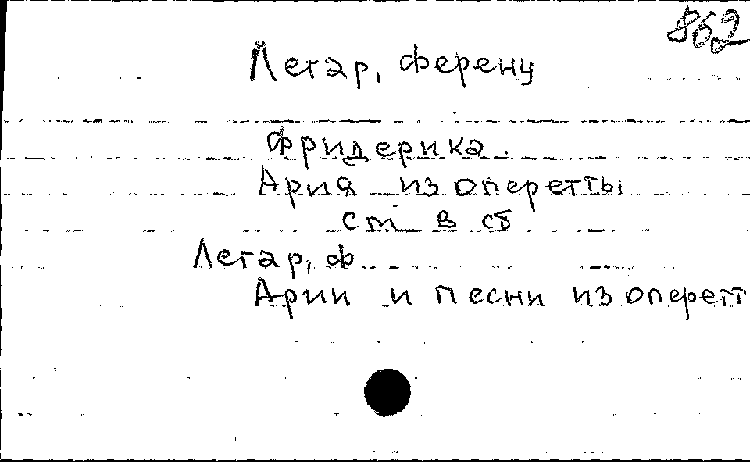 862
Легар, Ференц
Фридерика.
Ария из оперетты
см в сб
Легар, Ф
Арии и песни из оперетт